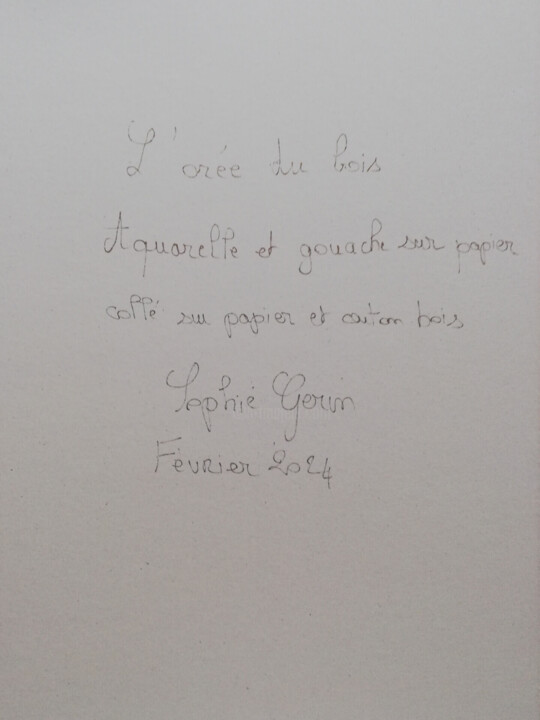 L'orée du bois
Aquarelle et gouache sur papier
collé sur papier et carton bois
Sophie Gerin
Février 2024